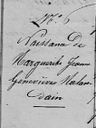 N.° 6
Naissance de
Marguerite Jeanne
Genevieve
dain